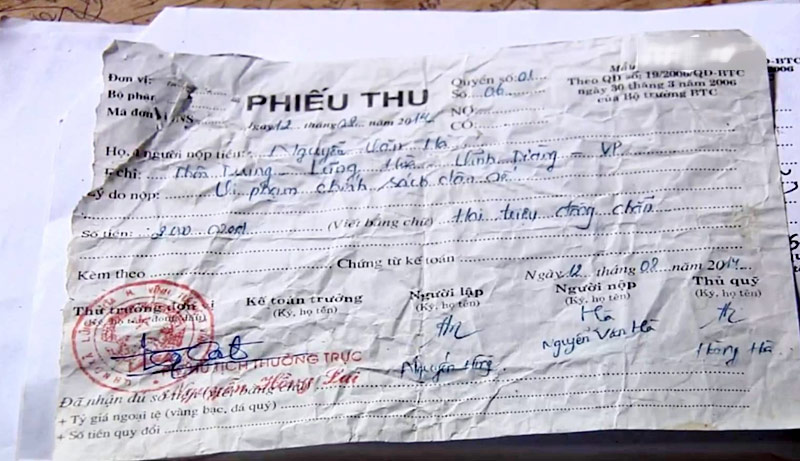 Đơn vị:
Bộ phận
Mã đơn
PHIẾU THU
Quyển số: 01
Số 06
NỢ
CÓ
Mẫu
Theo QĐ số: 19/2006/QĐ-BTC
ngày 30 tháng 3 năm 2006
của Bộ trưởng BTC
Ngày 12 tháng 08 năm 2014
Họ, người nộp tiền: Nguyễn Văn Hà
chỉ: Thôn Trung - Lũng Hòa - Vĩnh Tường - VP
Lý do nộp: Vi phạm chính sách dân số
Số tiền: (Viết bằng chữ) Hai triệu đồng chẵn
Kèm theo Chứng từ kế toán
Ngày 12 tháng 08 năm 2014
Thủ trưởng đơn vị Kế toán trưởng Người lập Người nộp Thủ quỹ
(Ký, họ tên) (Ký, họ tên) (Ký, họ tên) (Ký, họ tên)
Hà
Nguyễn Văn Hà
Hồng Hà
PHÓ CHỦ TỊCH THƯỜNG TRỰC
Nguyễn Hồng Lai
Đã nhận đủ số tiền
+ Tỷ giá ngoại tệ (vàng bạc, đá quý)
+ Số tiền quy đổi